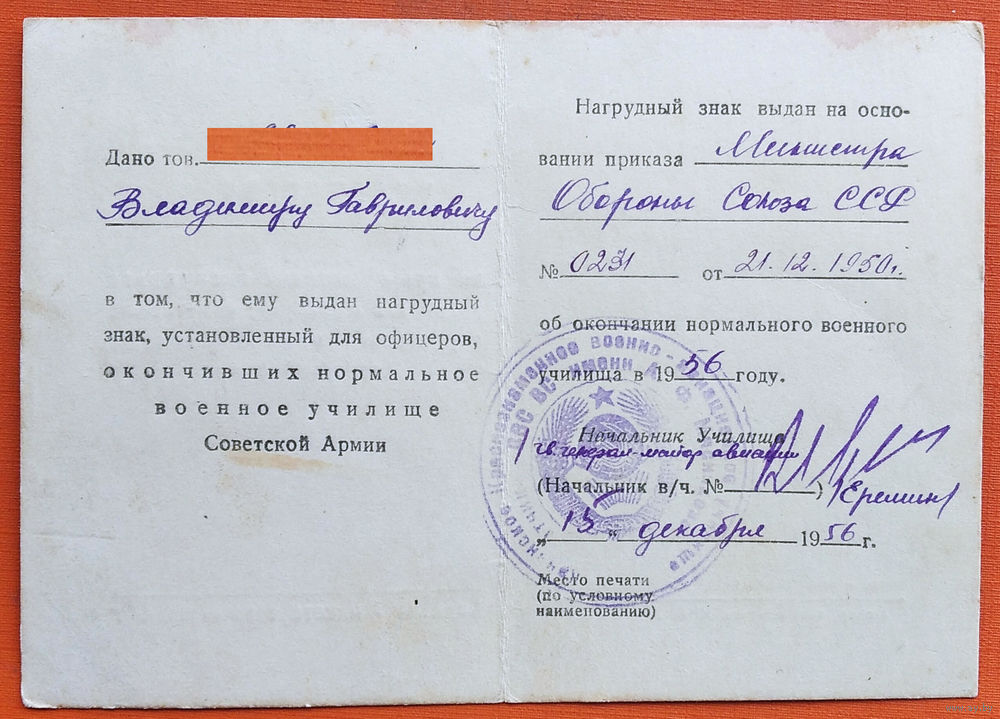 Дано тов.
Владимиру Гавриловичу
в том, что ему выдан нагрудный
знак, установленный для офицеров,
окончивших нормальное
военное училище
Советской Армии
Нагрудный знак выдан на осно-
вании приказа Министра
Обороны Союза ССР
№ 0231 от 21.12.1950г.
об окончании нормального военного
училища в 1956 году.
Начальник Училища
гв. генерал-майор авиации
(Начальник в/ч. №) /Еремин/
"13" декабря 1956 г.
Место печати
(по условному
наименованию)
Краснознаменное военно-
ВВС ВС имени А. Ф.